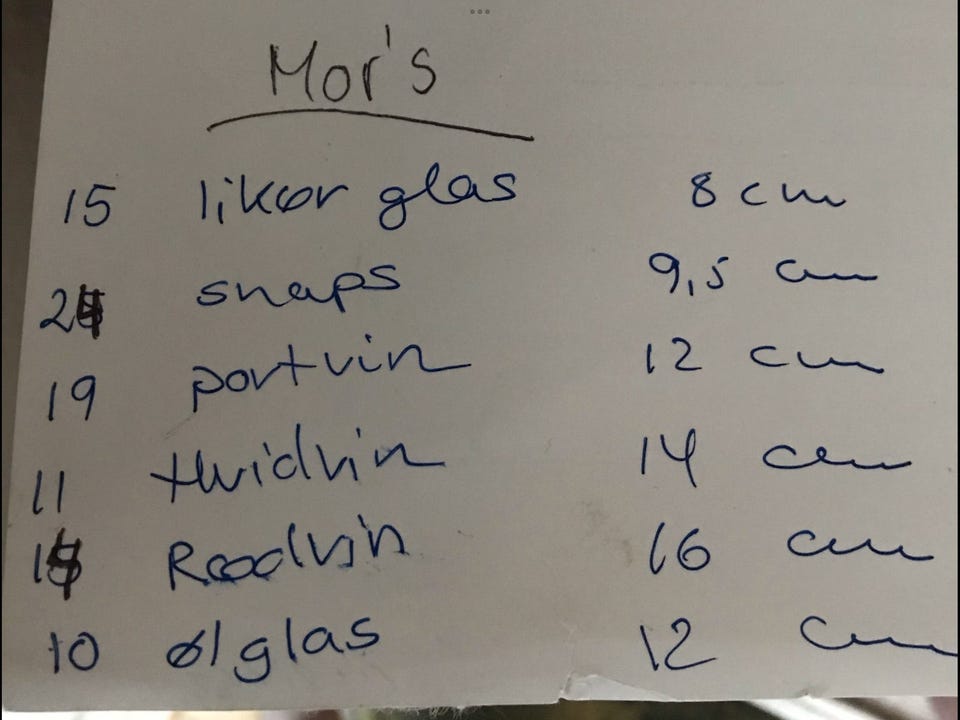 Mor's
15 likør glas 8 cm
24 snaps 9,5 cm
19 portvin 12 cm
11 Hvidvin 14 cm
14 Rødvin 16 cm
10 ølglas 12 cm